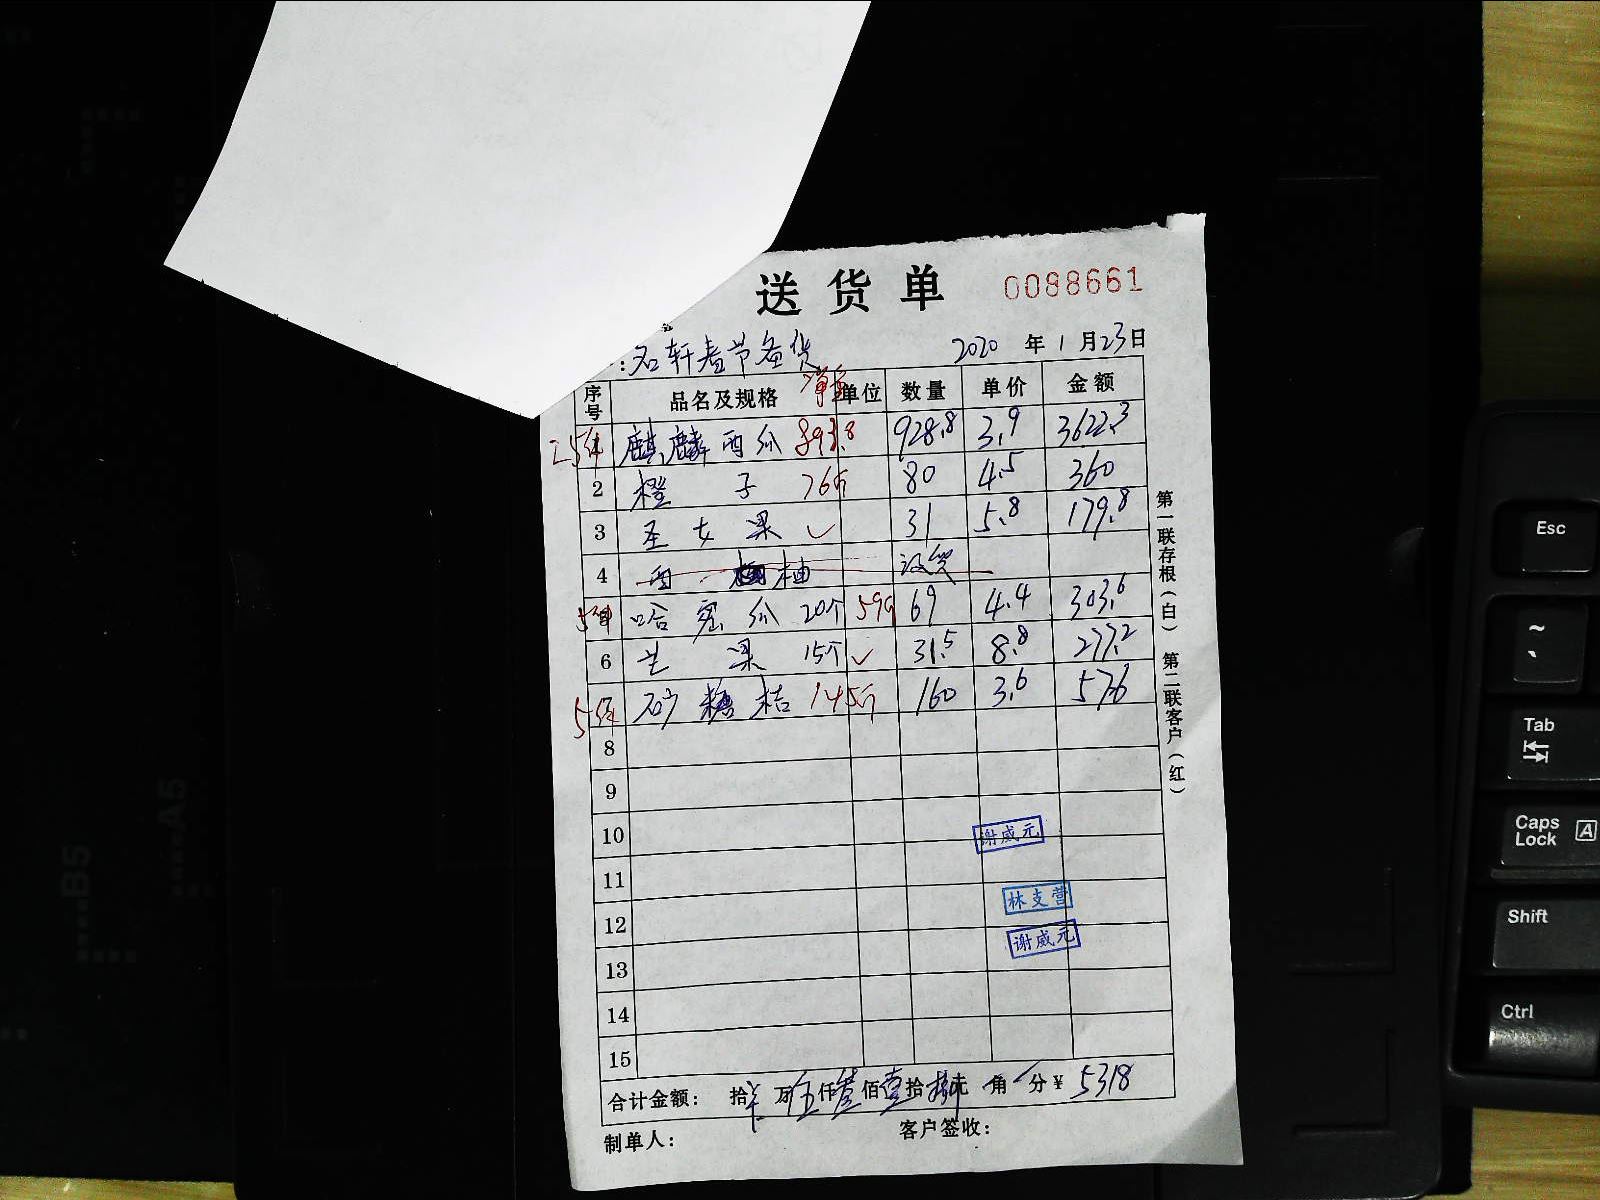 送货单 0088661
:名轩春节备货 2020年1月23日
序号 品名及规格 净重 单位 数量 单价 金额
25件 麒麟西瓜 893.8 928.8 3.9 3622.3
2 橙子 76斤 80 4.5 360
3 圣女果 ✓ 31 5.8 179.8
4 西柚 没货
哈密瓜 20个 59斤 69 4.4 303.6
6 芒果 15个 ✓ 31.5 8.8 277.2
5件 砂糖桔 145斤 160 3.6 576
8
9
10 谢威元
11
12 林支营
13 谢威元
14
15
合计金额: 拾 万伍仟叁佰壹拾捌元 角 分¥ 5318
制单人: 客户签收:
第一联存根(白) 第二联客户(红)
B5
A5
Esc
~
`
Tab
Caps Lock A
Shift
Ctrl